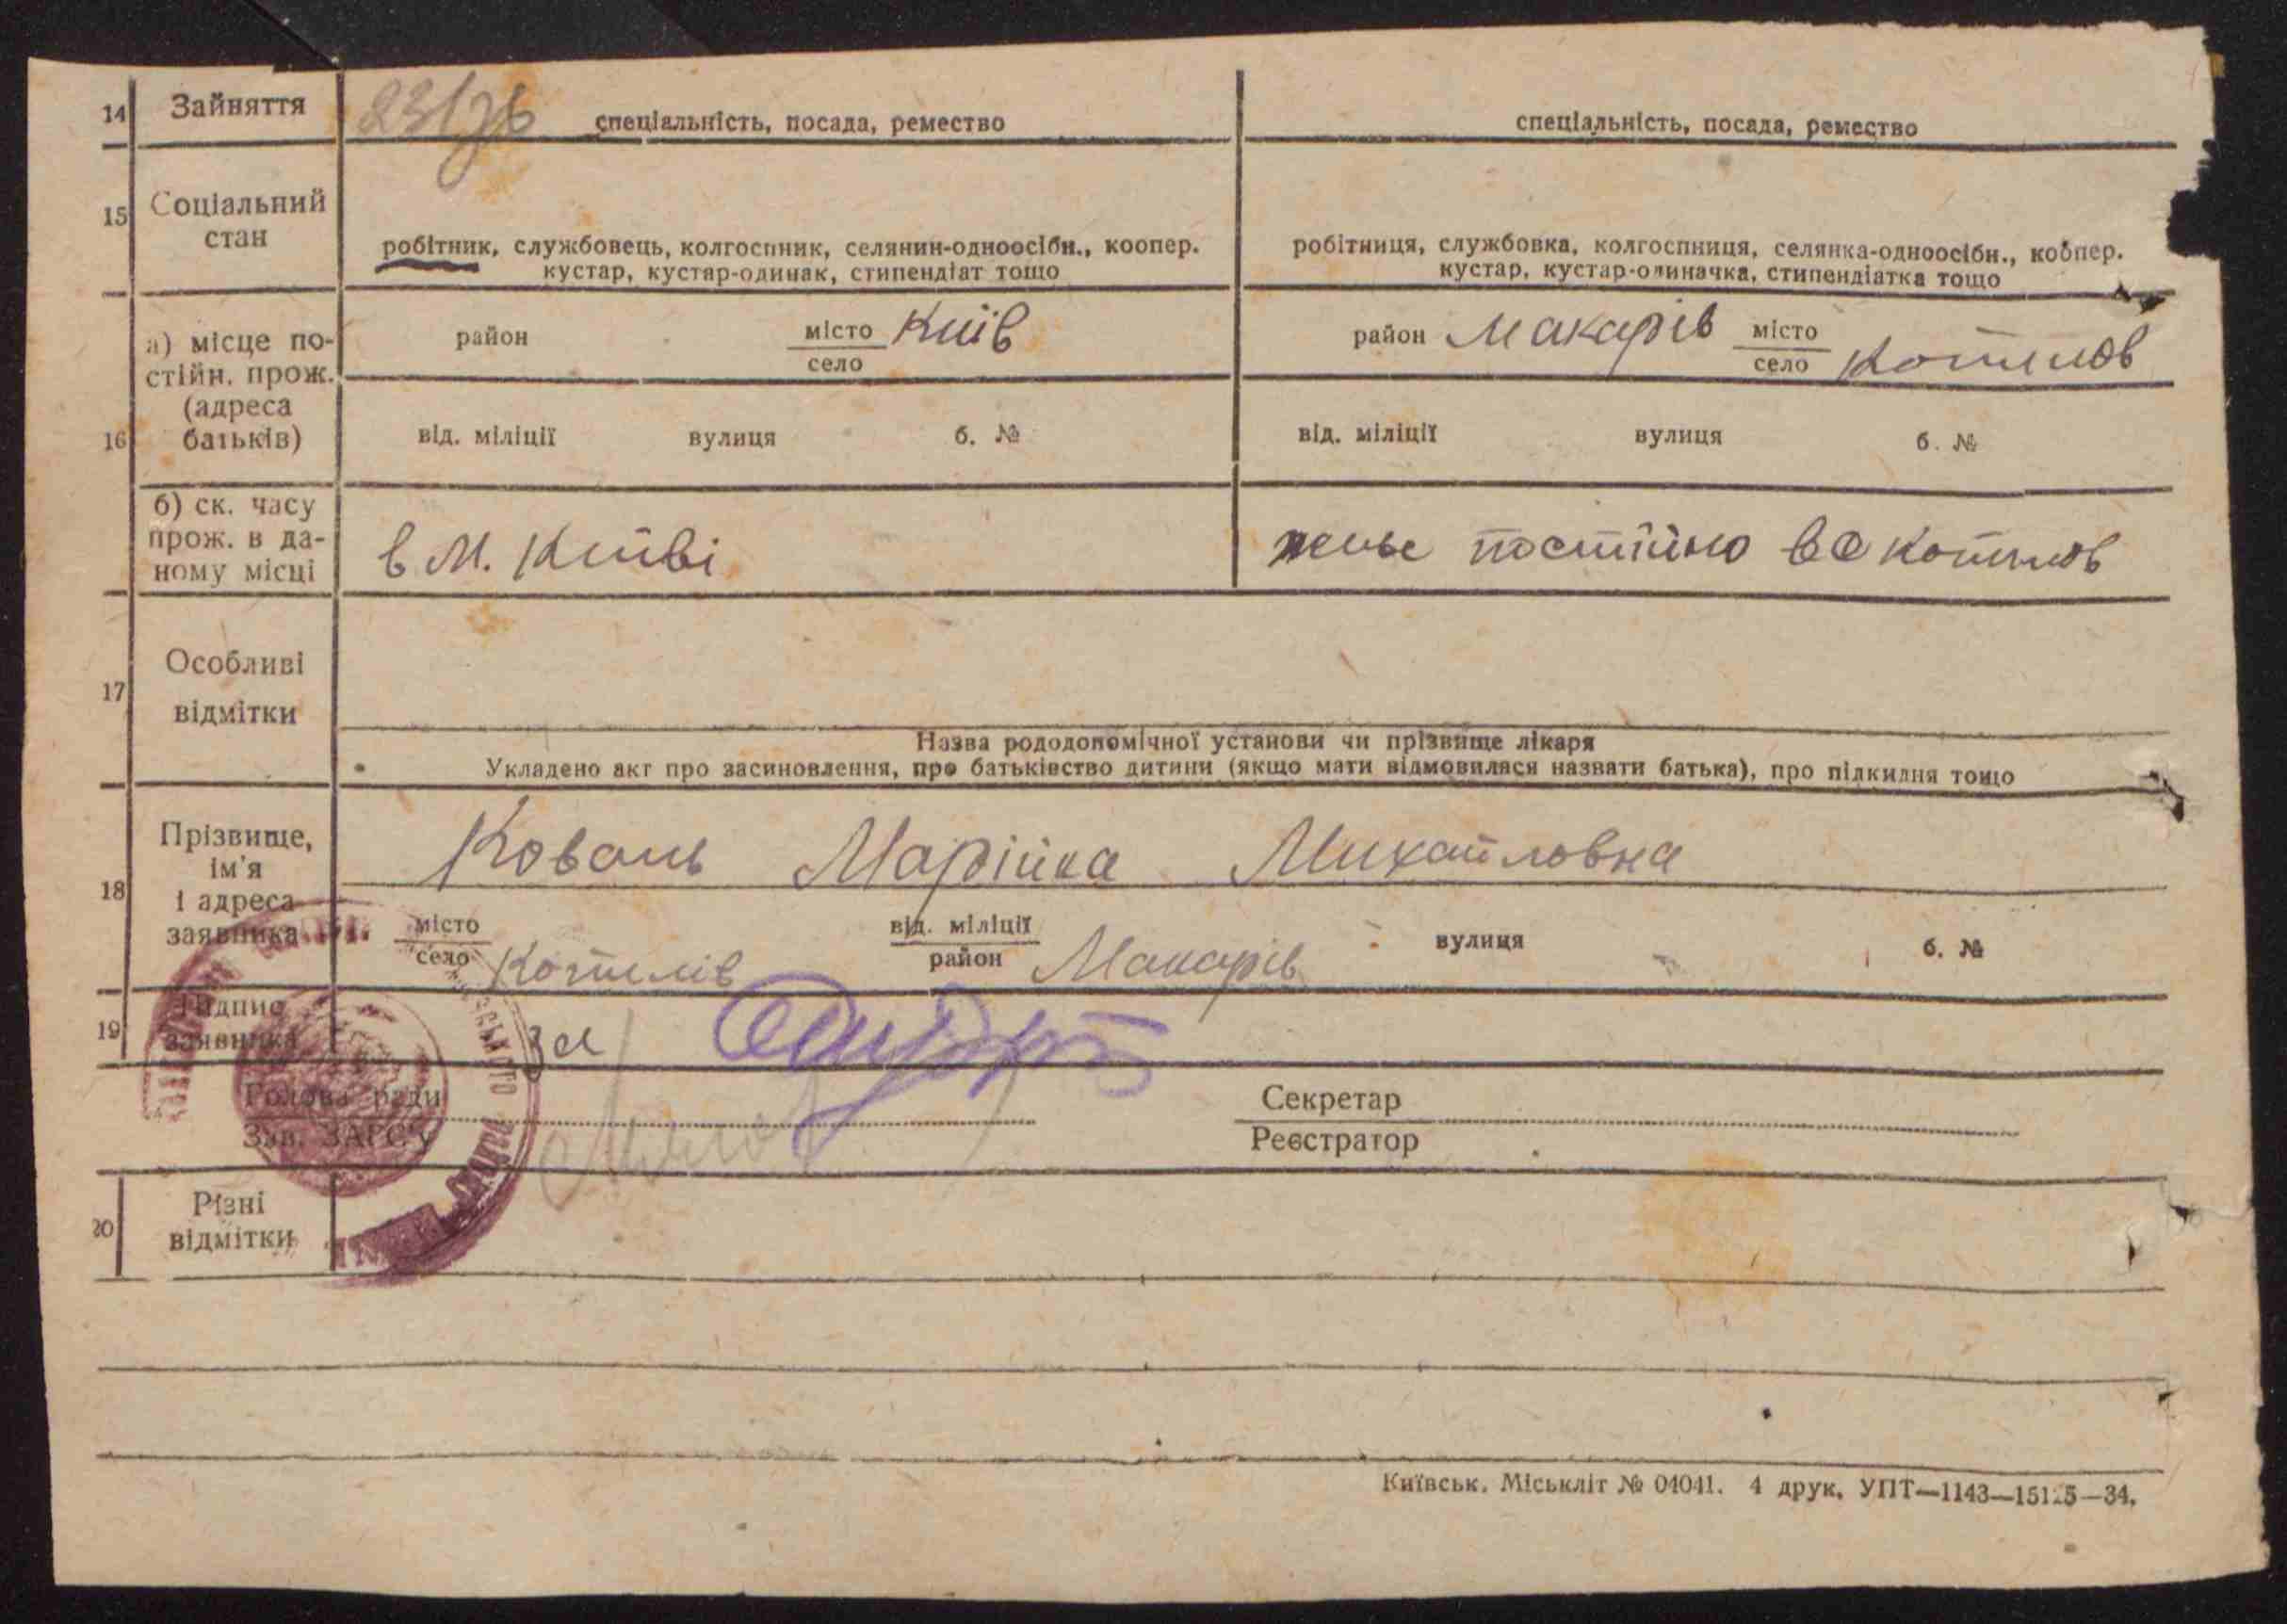 14 Зайняття 23/76 спеціальність, посада, ремество спеціальність, посада, ремество
15 Соціальний
стан
робітник, службовець, колгоспник, селянин-одноосібн., коопер.
кустар, кустар-одинак, стипендіат тощо
робітниця, службовка, колгоспниця, селянка-одноосібн., коопер.
кустар, кустар-одиначка, стипендіатка тощо
16
а) місце по-
стійн. прож.
(адреса
батьків)
район місто Київ
село
район Макарів місто
село Котилов
від. міліції вулиця б. №
від. міліції вулиця б. №
б) ск. часу
прож. в да-
ному місці
в м. Київі
постійно в с Котилов
17 Особливі
відмітки
Назва рододопомічної установи чи прізвище лікаря
Укладено акт про засиновлення, про батьківство дитини (якщо мати відмовилася назвати батька), про підкидня тощо
18 Прізвище,
ім'я
і адреса
заявника
Коваль Марійка Михайловна
місто
село Котилів
від. міліції
район Макарів
вулиця б. №
19 Підпис
заявника
За
Голова ради
Зав. ЗАГС'у
Секретар
Реєстратор
20 Різні
відмітки
Київськ. Міськліт № 04041. 4 друк. УПТ—1143—15125—34.